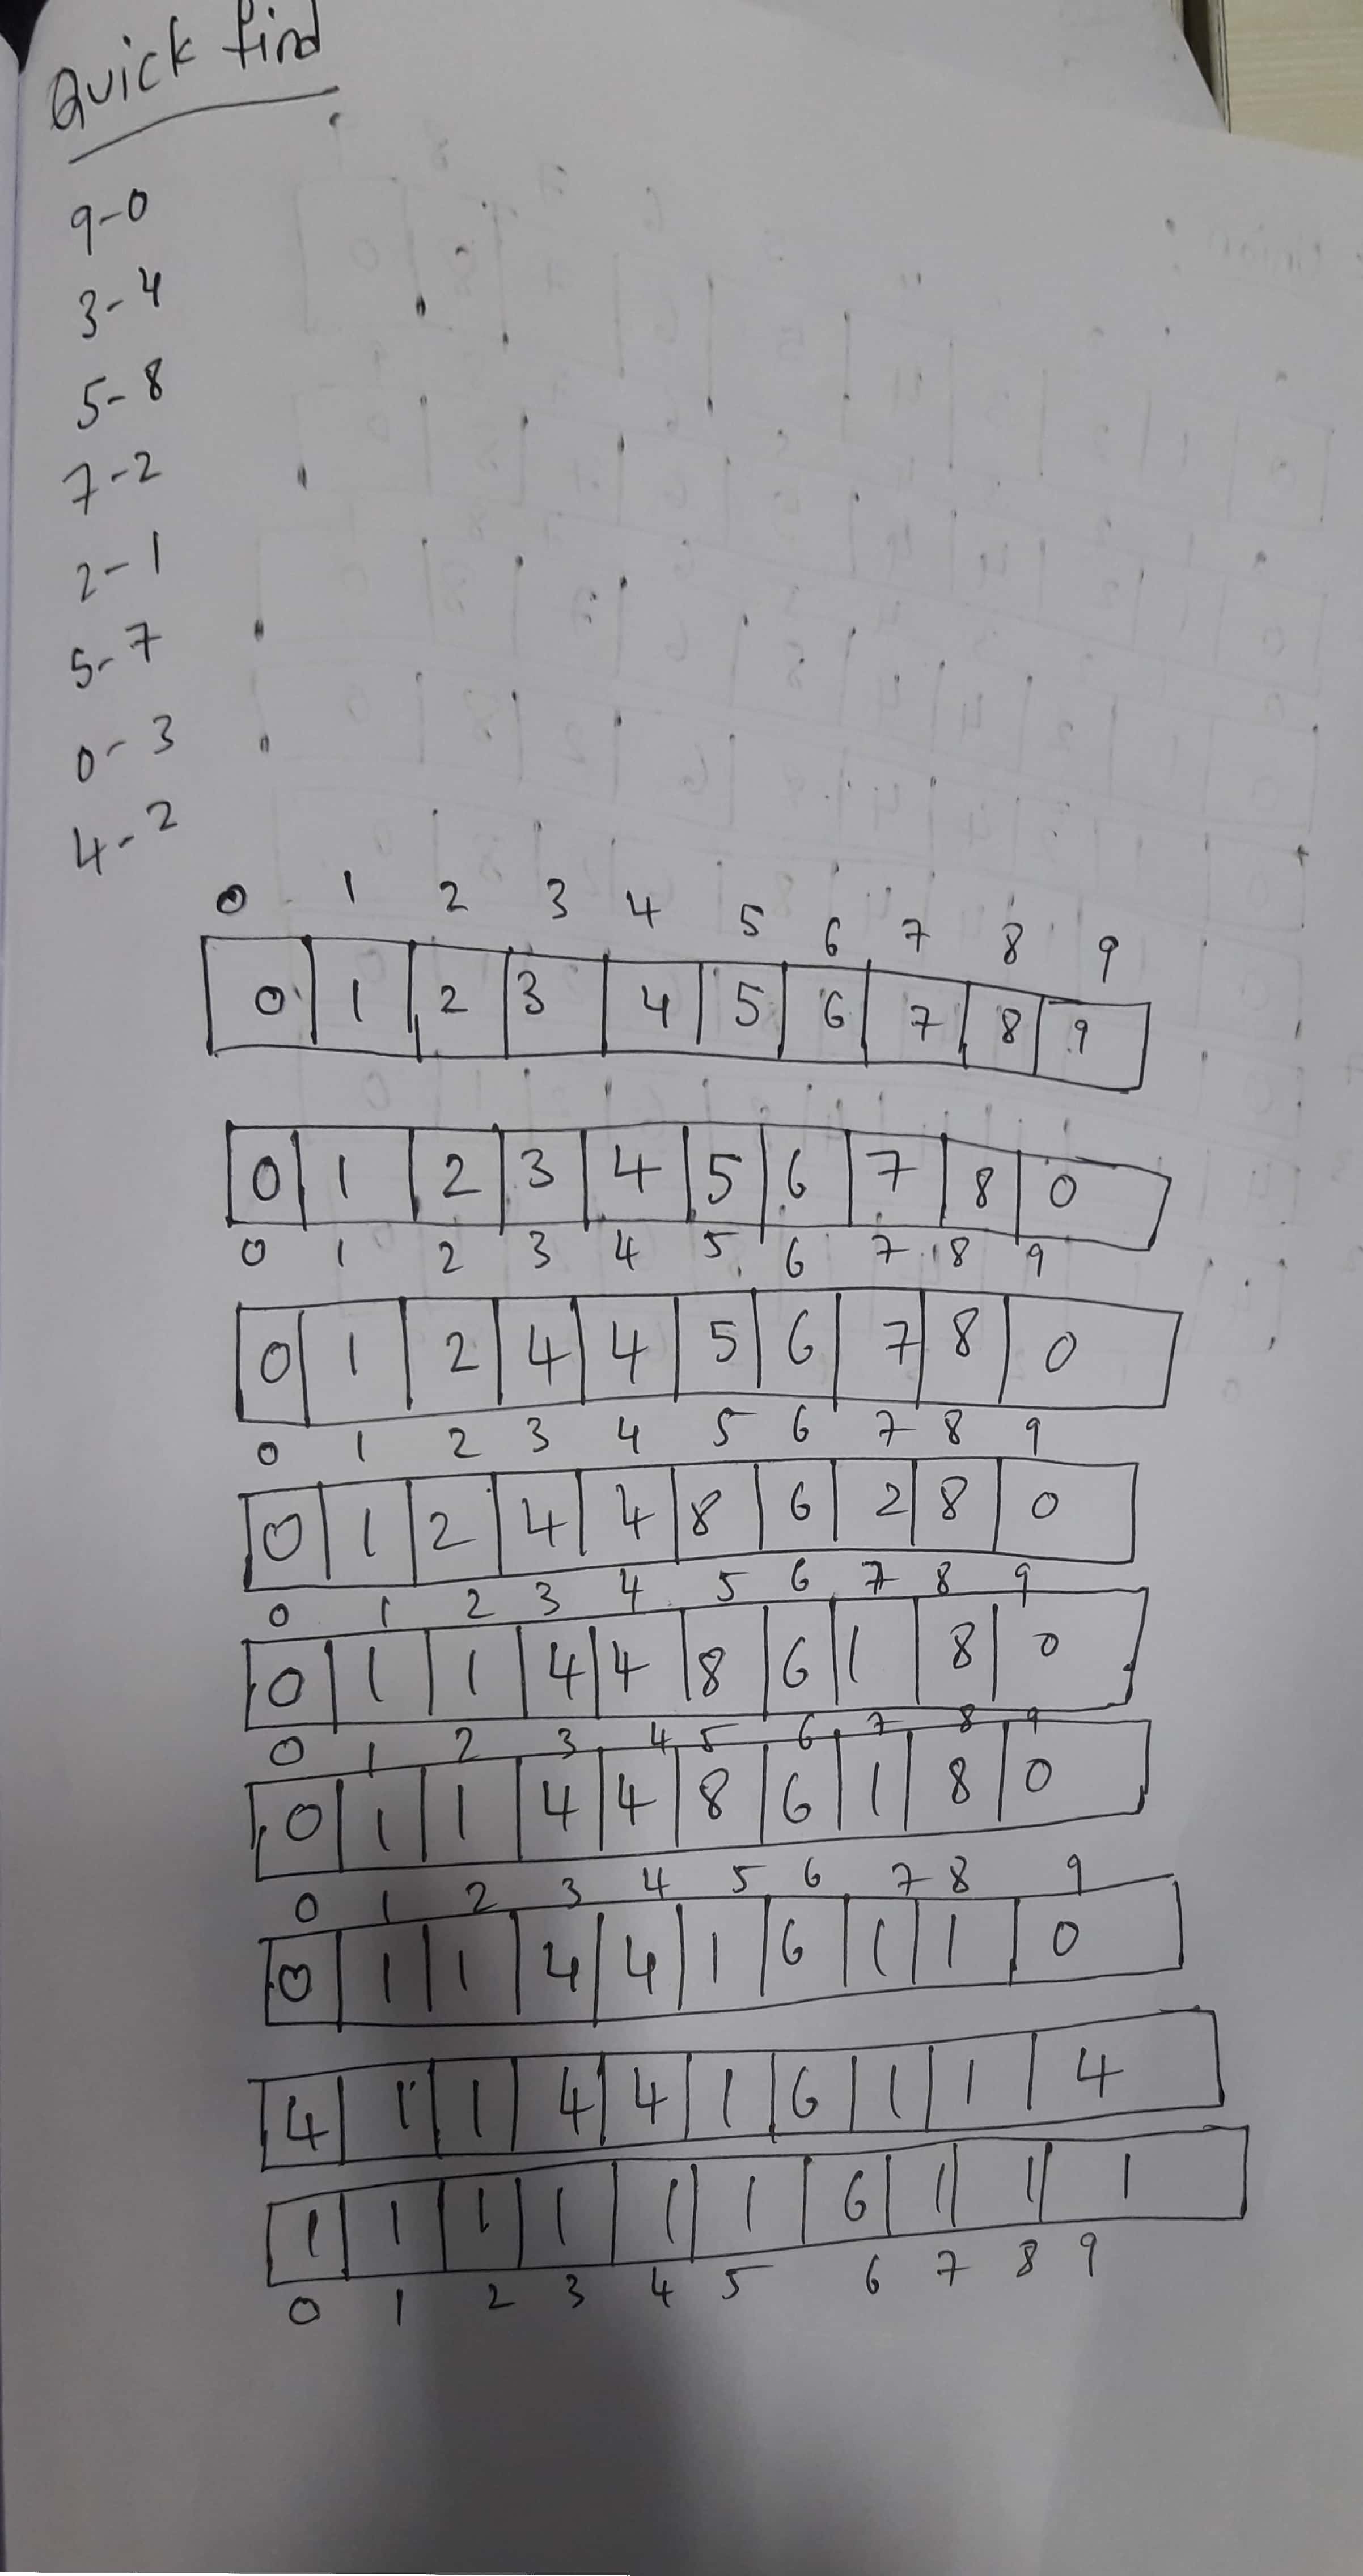 Quick find
9-0
3-4
5-8
7-2
2-1
5-7
0-3
4-2
0 1 2 3 4 5 6 7 8 9
0 1 2 3 4 5 6 7 8 9
0 1 2 3 4 5 6 7 8 0
0 1 2 3 4 5 6 7 8 9
0 1 2 4 4 5 6 7 8 0
0 1 2 3 4 5 6 7 8 9
0 1 2 4 4 8 6 2 8 0
0 1 2 3 4 5 6 7 8 9
0 1 1 4 4 8 6 1 8 0
0 1 2 3 4 5 6 7 8 9
0 1 1 4 4 8 6 1 8 0
0 1 2 3 4 5 6 7 8 9
0 1 1 4 4 1 6 1 1 0
4 1 1 4 4 1 6 1 1 4
1 1 1 1 1 1 6 1 1 1
0 1 2 3 4 5 6 7 8 9